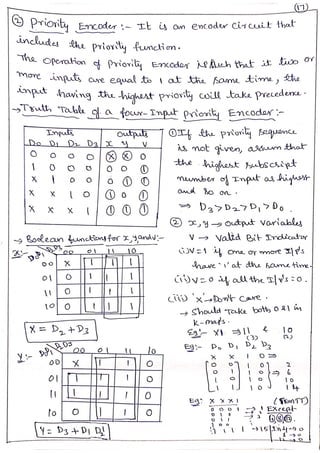 (17)
② Priority Encoder :- It is an encoder circuit that
includes the priority function.
The operation of Priority Encoder is such that if two or
more inputs are equal to 1 at the same time, the
input having the highest priority will take precedence.
→ Truth Table of a four-Input Priority Encoder:-
Inputs Outputs
D0 D1 D2 D3 x y V
0 0 0 0 X X 0
1 0 0 0 0 0 1
X 1 0 0 0 1 1
X X 1 0 1 0 1
X X X 1 1 1 1
① If the priority sequence
is not given, assum that
the highest subscript
number of input as highest
and so on.
⇒ D3 > D2 > D1 > D0.
② x, y → output variables
V → Valid Bit Indicator
(i) V=1 if one or more I/P's
have '1' at the same time.
(ii) V=0 if all the I/P's = 0.
(iii) 'X' → Don't Care.
→ Should take both 0 & 1 in
K-maps.
Eg:- X1 ⇒ 11 & 10
(3) (2)
Eg:- D0 D1 D2 D3
X X 1 0 ⇒
0 0 1 0 2
0 1 1 0 6
1 0 1 0 10
1 1 1 0 14
Eg: X X X 1 (from TT)
0 0 0 1 → 1 Except
1 1 1 1 → 15
→ Boolean functions for x, y and v:-
x:- D2D3
D0D1 00 01 11 10
00 X 1 1 1
01 0 1 1 1
11 0 1 1 1
10 0 1 1 1
X = D2 + D3
y:- D2D3
D0D1 00 01 11 10
00 X 1 1 0
01 1 1 1 0
11 1 1 1 0
10 0 1 1 0
Y = D3 + D1 D2'